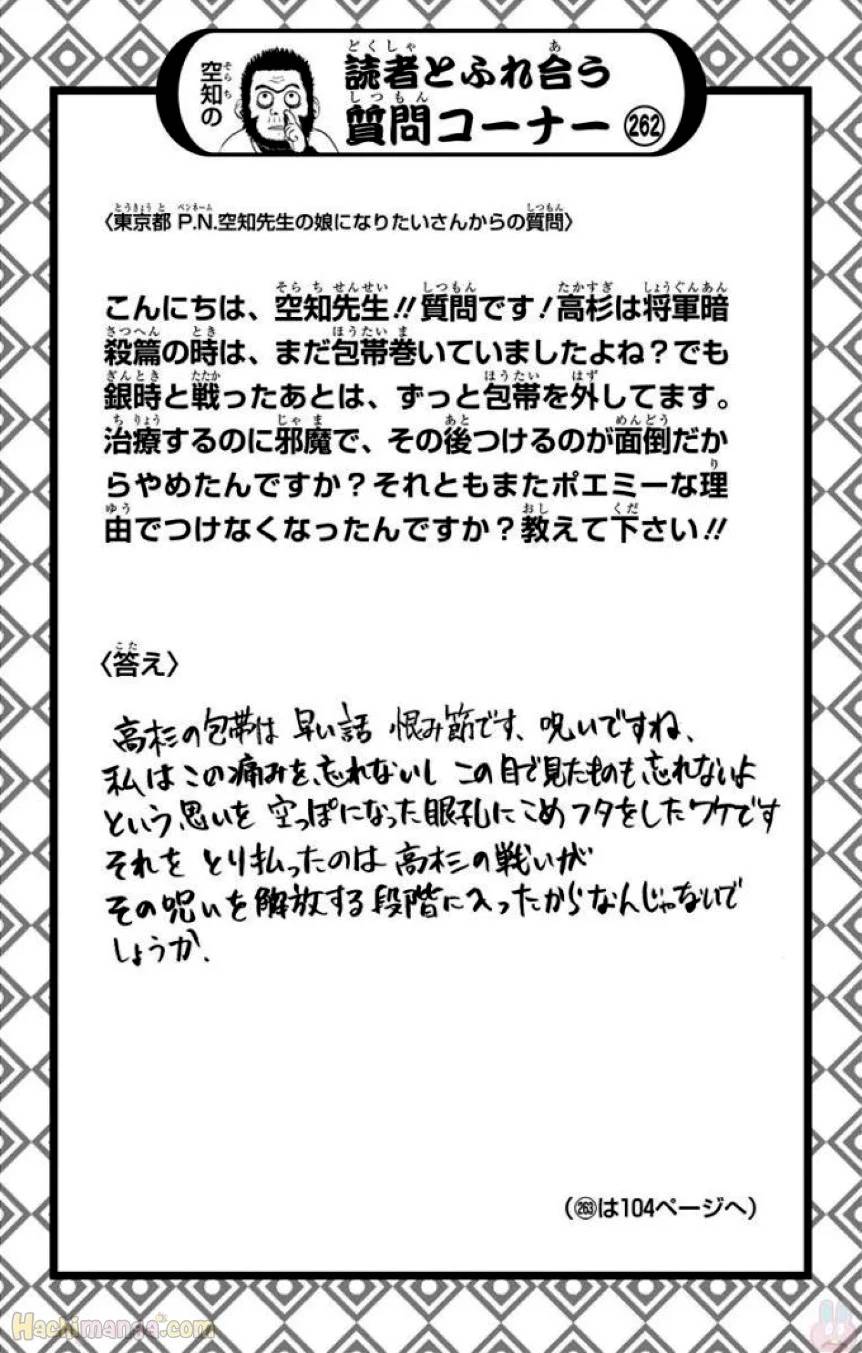 空知の
読者とふれ合う
質問コーナー 262
〈東京都 P.N.空知先生の娘になりたいさんからの質問〉
こんにちは、空知先生!!質問です!高杉は将軍暗
殺篇の時は、まだ包帯巻いていましたよね?でも
銀時と戦ったあとは、ずっと包帯を外してます。
治療するのに邪魔で、その後つけるのが面倒だか
らやめたんですか?それともまたポエミーな理
由でつけなくなったんですか?教えて下さい!!
〈答え〉
高杉の包帯は 早い話 恨み節です、呪いですね、
私はこの痛みを忘れないし この目で見たものも忘れないよ
という思いを 空っぽになった眼孔にこめフタをしたワケです
それを とり払ったのは 高杉の戦いが
その呪いを解放する段階に入ったからなんじゃないで
しょうか.
(263は104ページへ)
Hachimanga.com